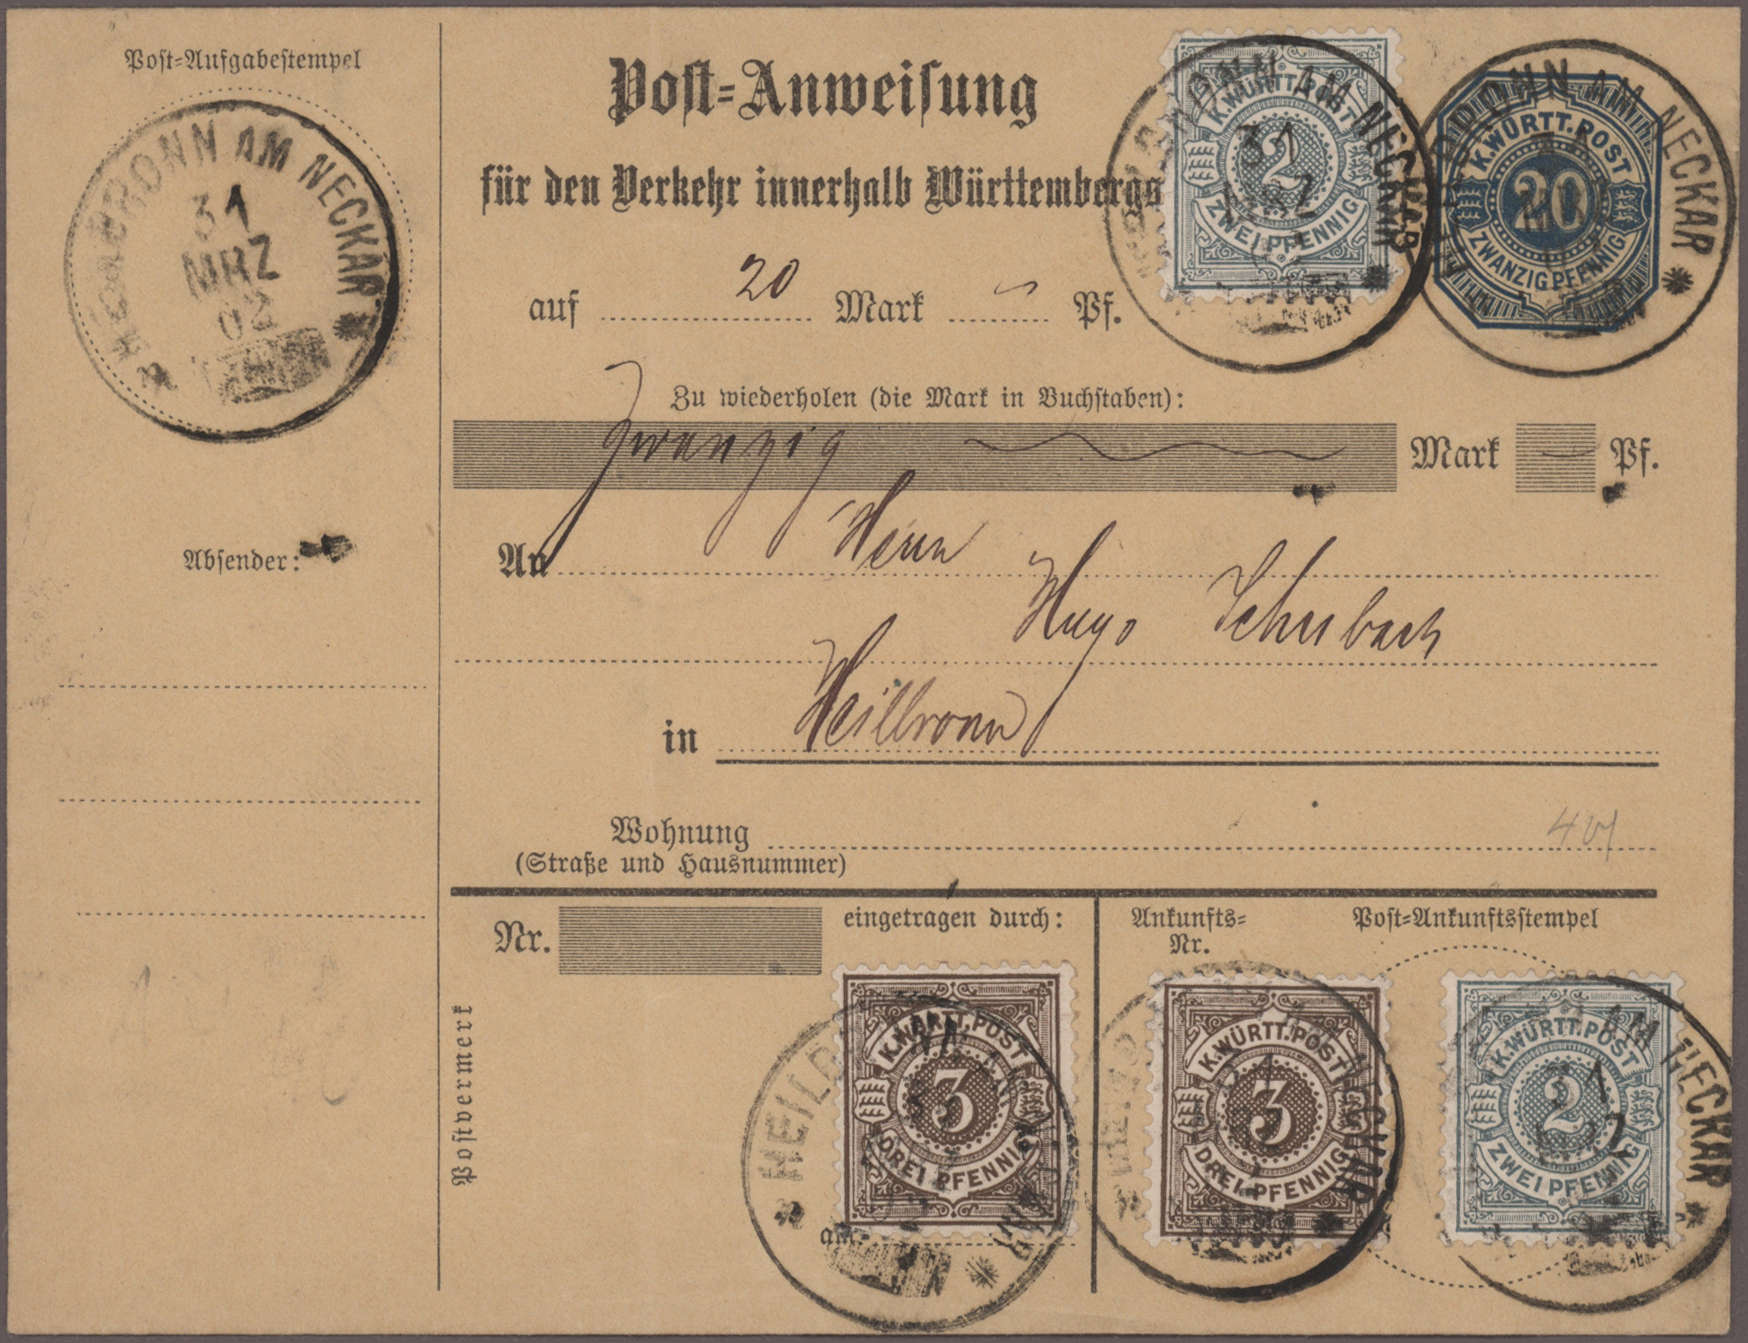 Post-Aufgabestempel
HEILBRONN AM NECKAR
31
MRZ
02
Absender:
Post-Anweisung
für den Verkehr innerhalb Württembergs
auf 20 Mark Pf.
Zu wiederholen (die Mark in Buchstaben):
zwanzig Mark Pf.
An Herrn
Hugo Schubach
in Heilbronn
Wohnung
(Straße und Hausnummer)
K.WÜRTT.POST
2
ZWEI PFENNIG
31
MRZ
AM NECKAR
K.WÜRTT.POST
20
ZWANZIG PFENNIG
NECKAR
Nr.
eingetragen durch:
Ankunfts-
Nr.
Post-Ankunftsstempel
Postvermerk
am
K.WÜRTT.POST
3
DREI PFENNIG
HEILBRONN AM NECKAR
K.WÜRTT.POST
3
DREI PFENNIG
NECKAR
K.WÜRTT.POST
2
ZWEI PFENNIG
31
AM NECKAR